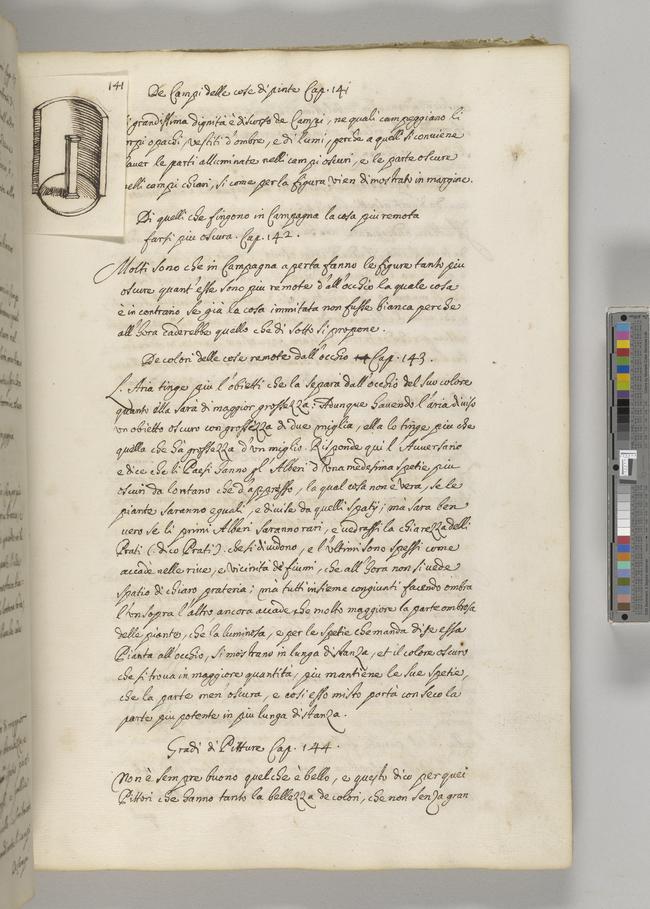 141
De Campi delle cose dipinte Cap. 141
grandissima dignità è discorso de Campi, ne quali campeggiano li
corpi opachi, vestiti d'ombre, e di lumi, perche a quelli si conviene
haver le parti alluminate nelli campi oscuri, e le parte oscure
nelli campi chiari, si come per la figura vien dimostrato in margine.
Di quelli che fingono in Campagna la cosa piu remota
farsi piu oscura. Cap. 142.
Molti sono che in Campagna aperta fanno le figure tanto piu
oscure quant'esse sono piu remote d'all'occhio la quale cosa
è in contrario, se già la cosa immitata non fusse bianca perche
all'hora caderebbe quello che di sotto si propone.
De colori delle cose remote dall'occhio Cap. 143.
L'Aria tinge piu l'obietti che la separa dall'occhio del suo colore
quanto ella sarà di maggior grossezza: Adunque havendo l'aria diviso
un obietto oscuro con grossezza di due miglia, ella lo tinge piu che
quella che hà grossezza d'un miglio. Risponde qui l'Avversario
e dice che li Paesi hanno gl'Alberi d'una medesima spetie piu
oscuri da lontano che d'appresso, la qual cosa non è vera, se le
piante saranno eguali, e divise da quelli spatij; mà sara ben
vero se li primi Alberi saranno rari, e vedrassi la chiarezza delli
Prati (dico Prati) che si dividono, e l'ultimi sono spessi come
accade nelle rive, e vicinità de fiumi, che all'hora non si vede
spatio di chiaro prateria; mà tutti insieme congiunti facendo ombra
l'un sopra l'altro ancora accade che molto maggiore la parte ombrosa
delle piante, che la luminosa, e per le spetie che manda di se essa
Pianta all'occhio, si mostrano in lunga distanza, et il colore oscuro
che si trova in maggiore quantità, piu mantiene le sue spetie,
che la parte men'oscura, e così esso misto porta con seco la
parte piu potente in piu lunga distanza.
Gradi di Pitture Cap. 144.
Non è sempre buono quel che è bello, e questo dico per quei
Pittori che hanno tanto la bellezza de colori, che non senza gran